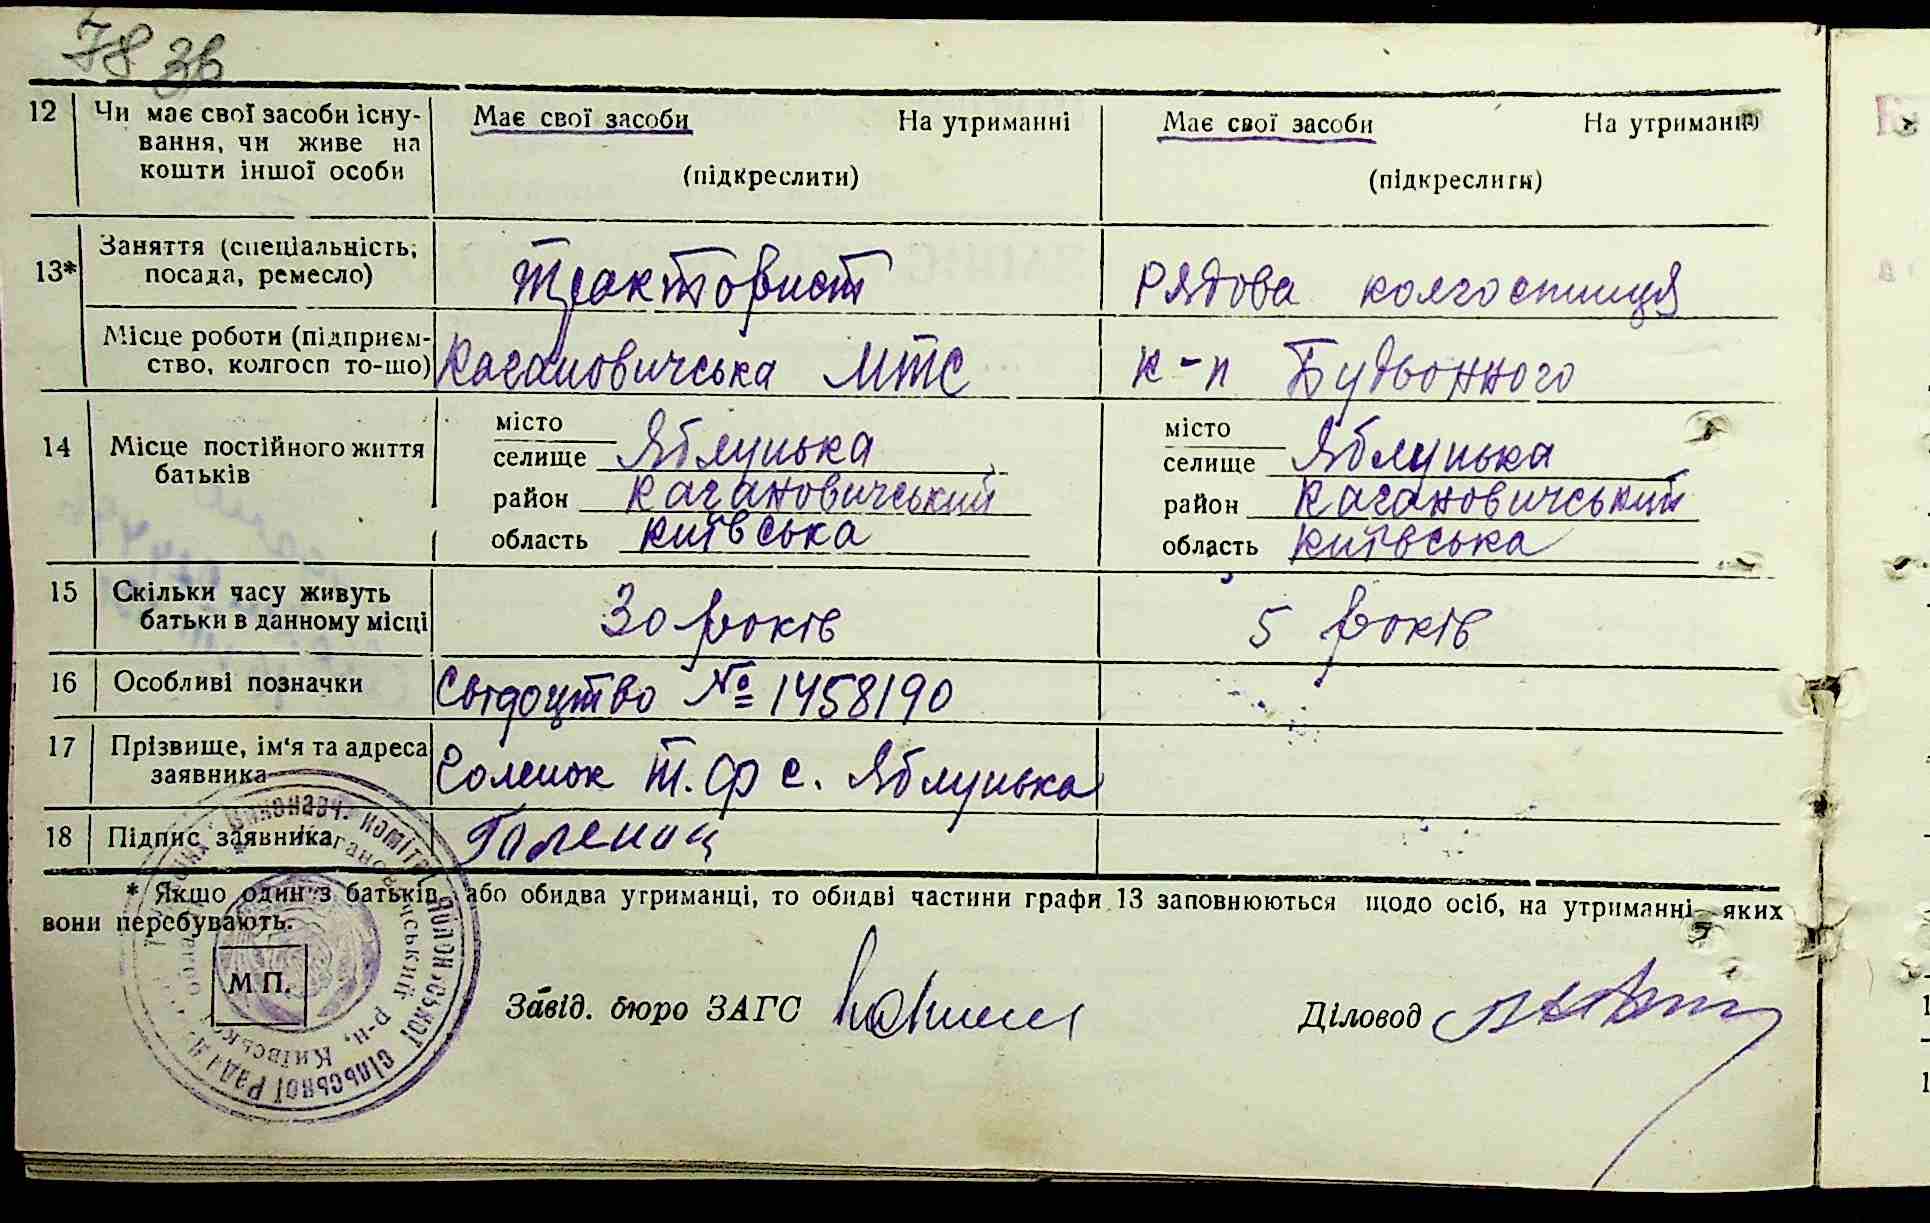 78 зв
12 Чи має свої засоби існу-
вання, чи живе на
кошти іншої особи
Має свої засоби На утриманні
(підкреслити)
Має свої засоби На утриманні
(підкреслити)
13* Заняття (спеціальність,
посада, ремесло)
Тракторист
Рядова колгоспниця
Місце роботи (підприєм-
ство, колгосп то-що)
Кагановичська МТС
к-п Будьонного
14 Місце постійного життя
батьків
місто
селище Яблунька
район Кагановичський
область Київська
місто
селище Яблунька
район Кагановичський
область Київська
15 Скільки часу живуть
батьки в данному місці
30 років
5 років
16 Особливі позначки
Свідоцтво № 1458190
17 Прізвище, ім'я та адреса
заявника
Соленок Т. Ф с. Яблунька
18 Підпис заявника
* Якщо один з батьків або обидва утриманці, то обидві частини графи 13 заповнюються щодо осіб, на утриманні яких
вони перебувають.
М П.
Завід. бюро ЗАГС
Діловод